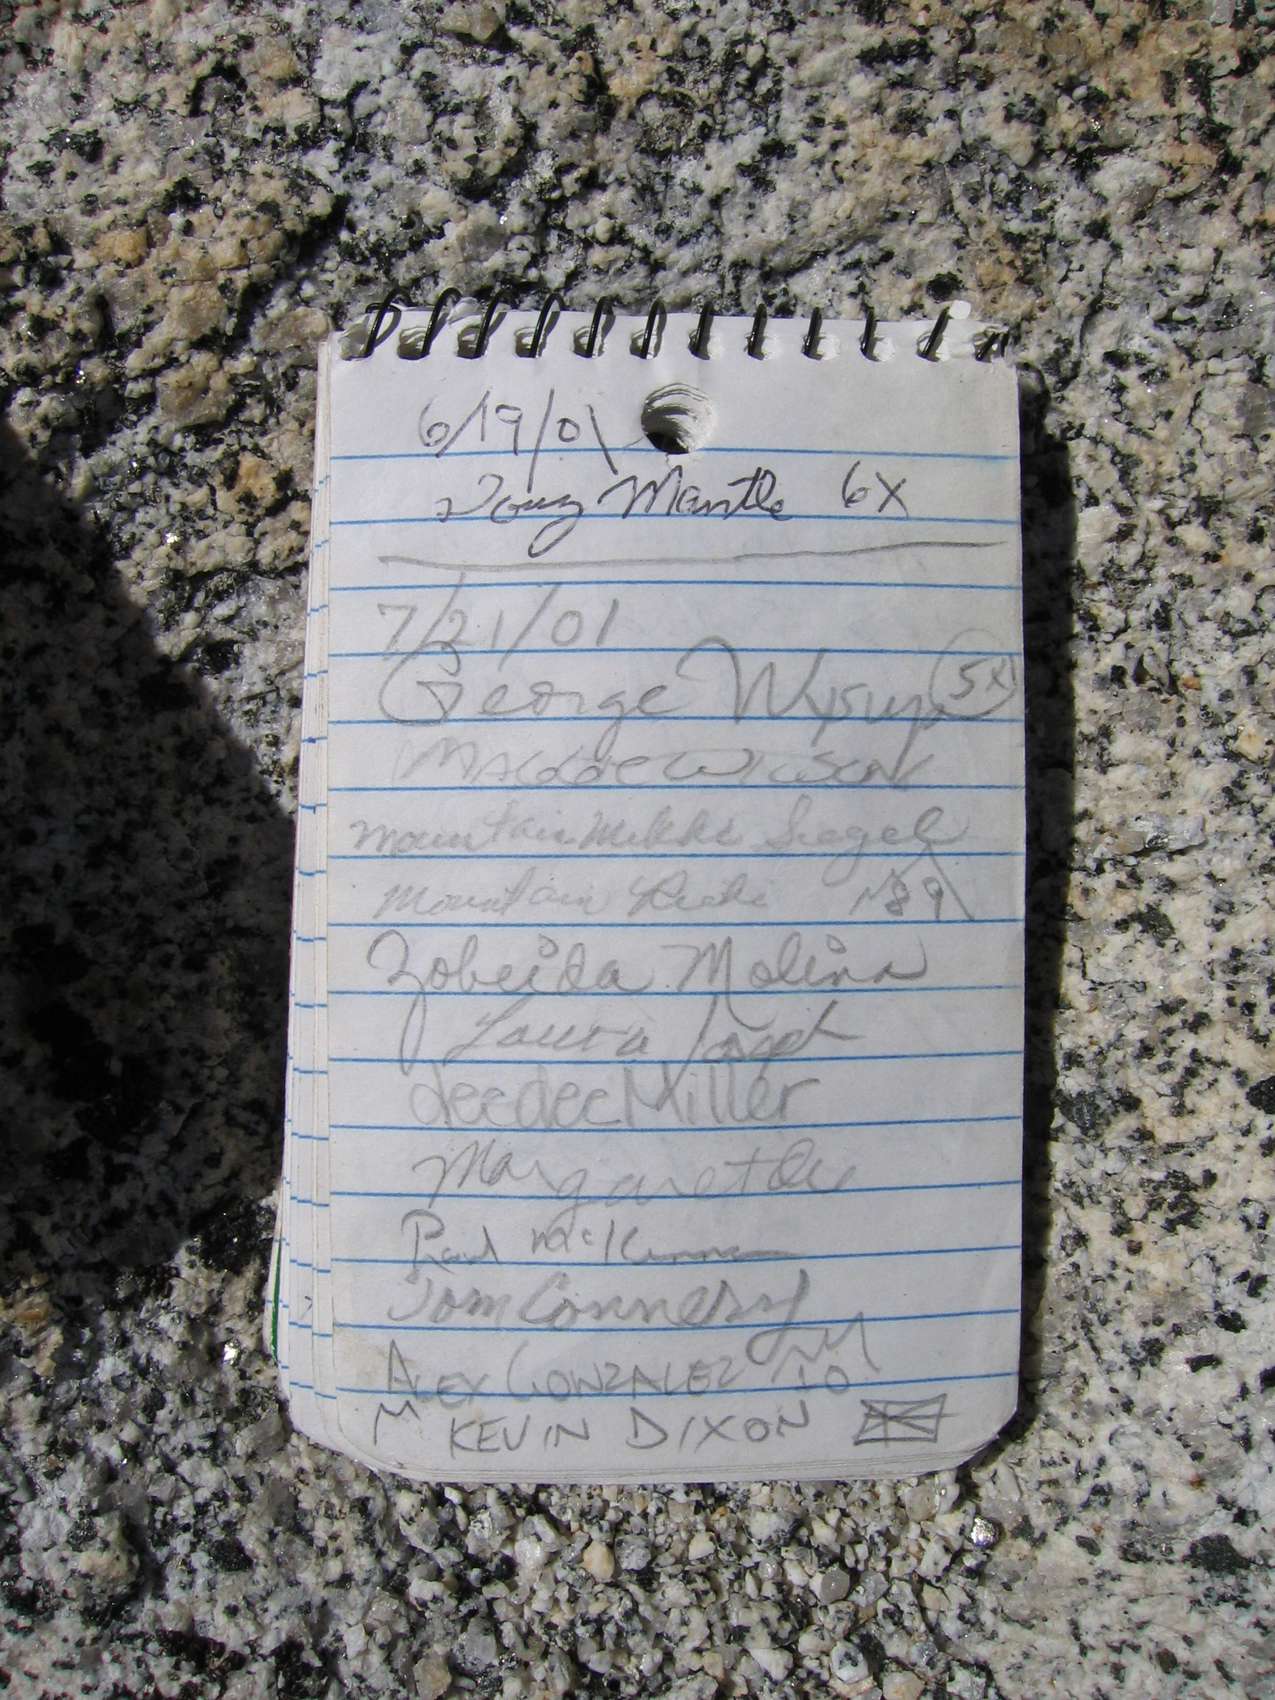 6/19/01
Doug Mantle 6X
7/21/01
George Wysup 5X
Mountain Mikki Siegel
Mountain 89
Zobeida Molina
Laura Joseph
deedee Miller
Margaret
Paul McKinnon
Tom Connery
ALEX GONZALEZ
KEVIN DIXON